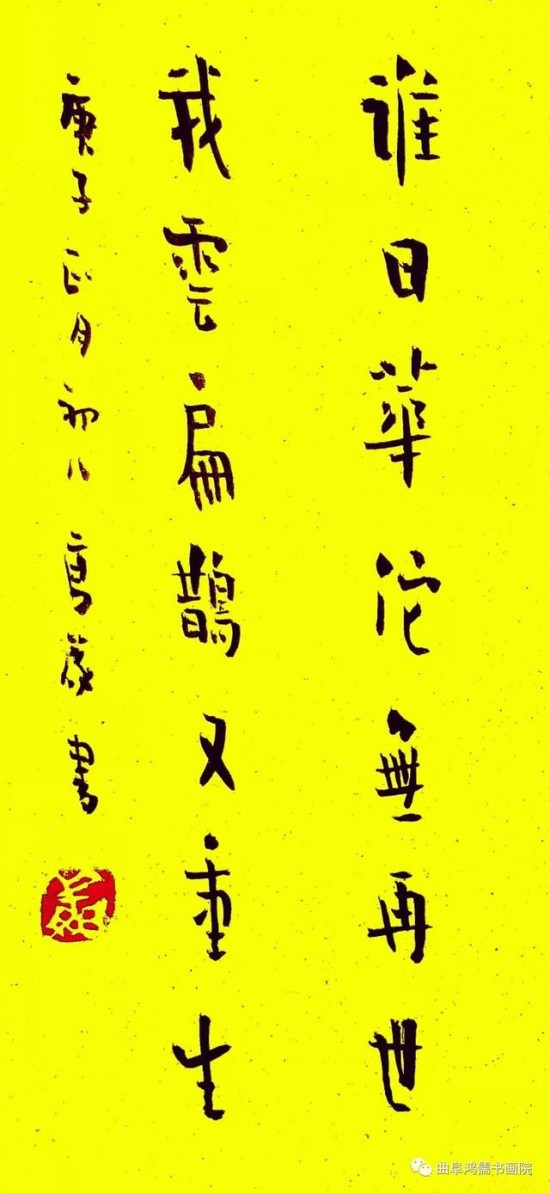 誰曰華佗無再世
我雲扁鵲又重生
庚子正月初八高箴書
曲阜鸿儒书画院